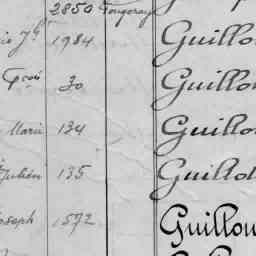 2850 Fougeray
1984 Guillou
Gcois 30 Guillou
Marie 134 Guillou
Julien 135 Guillo
Joseph 1572 Guillou